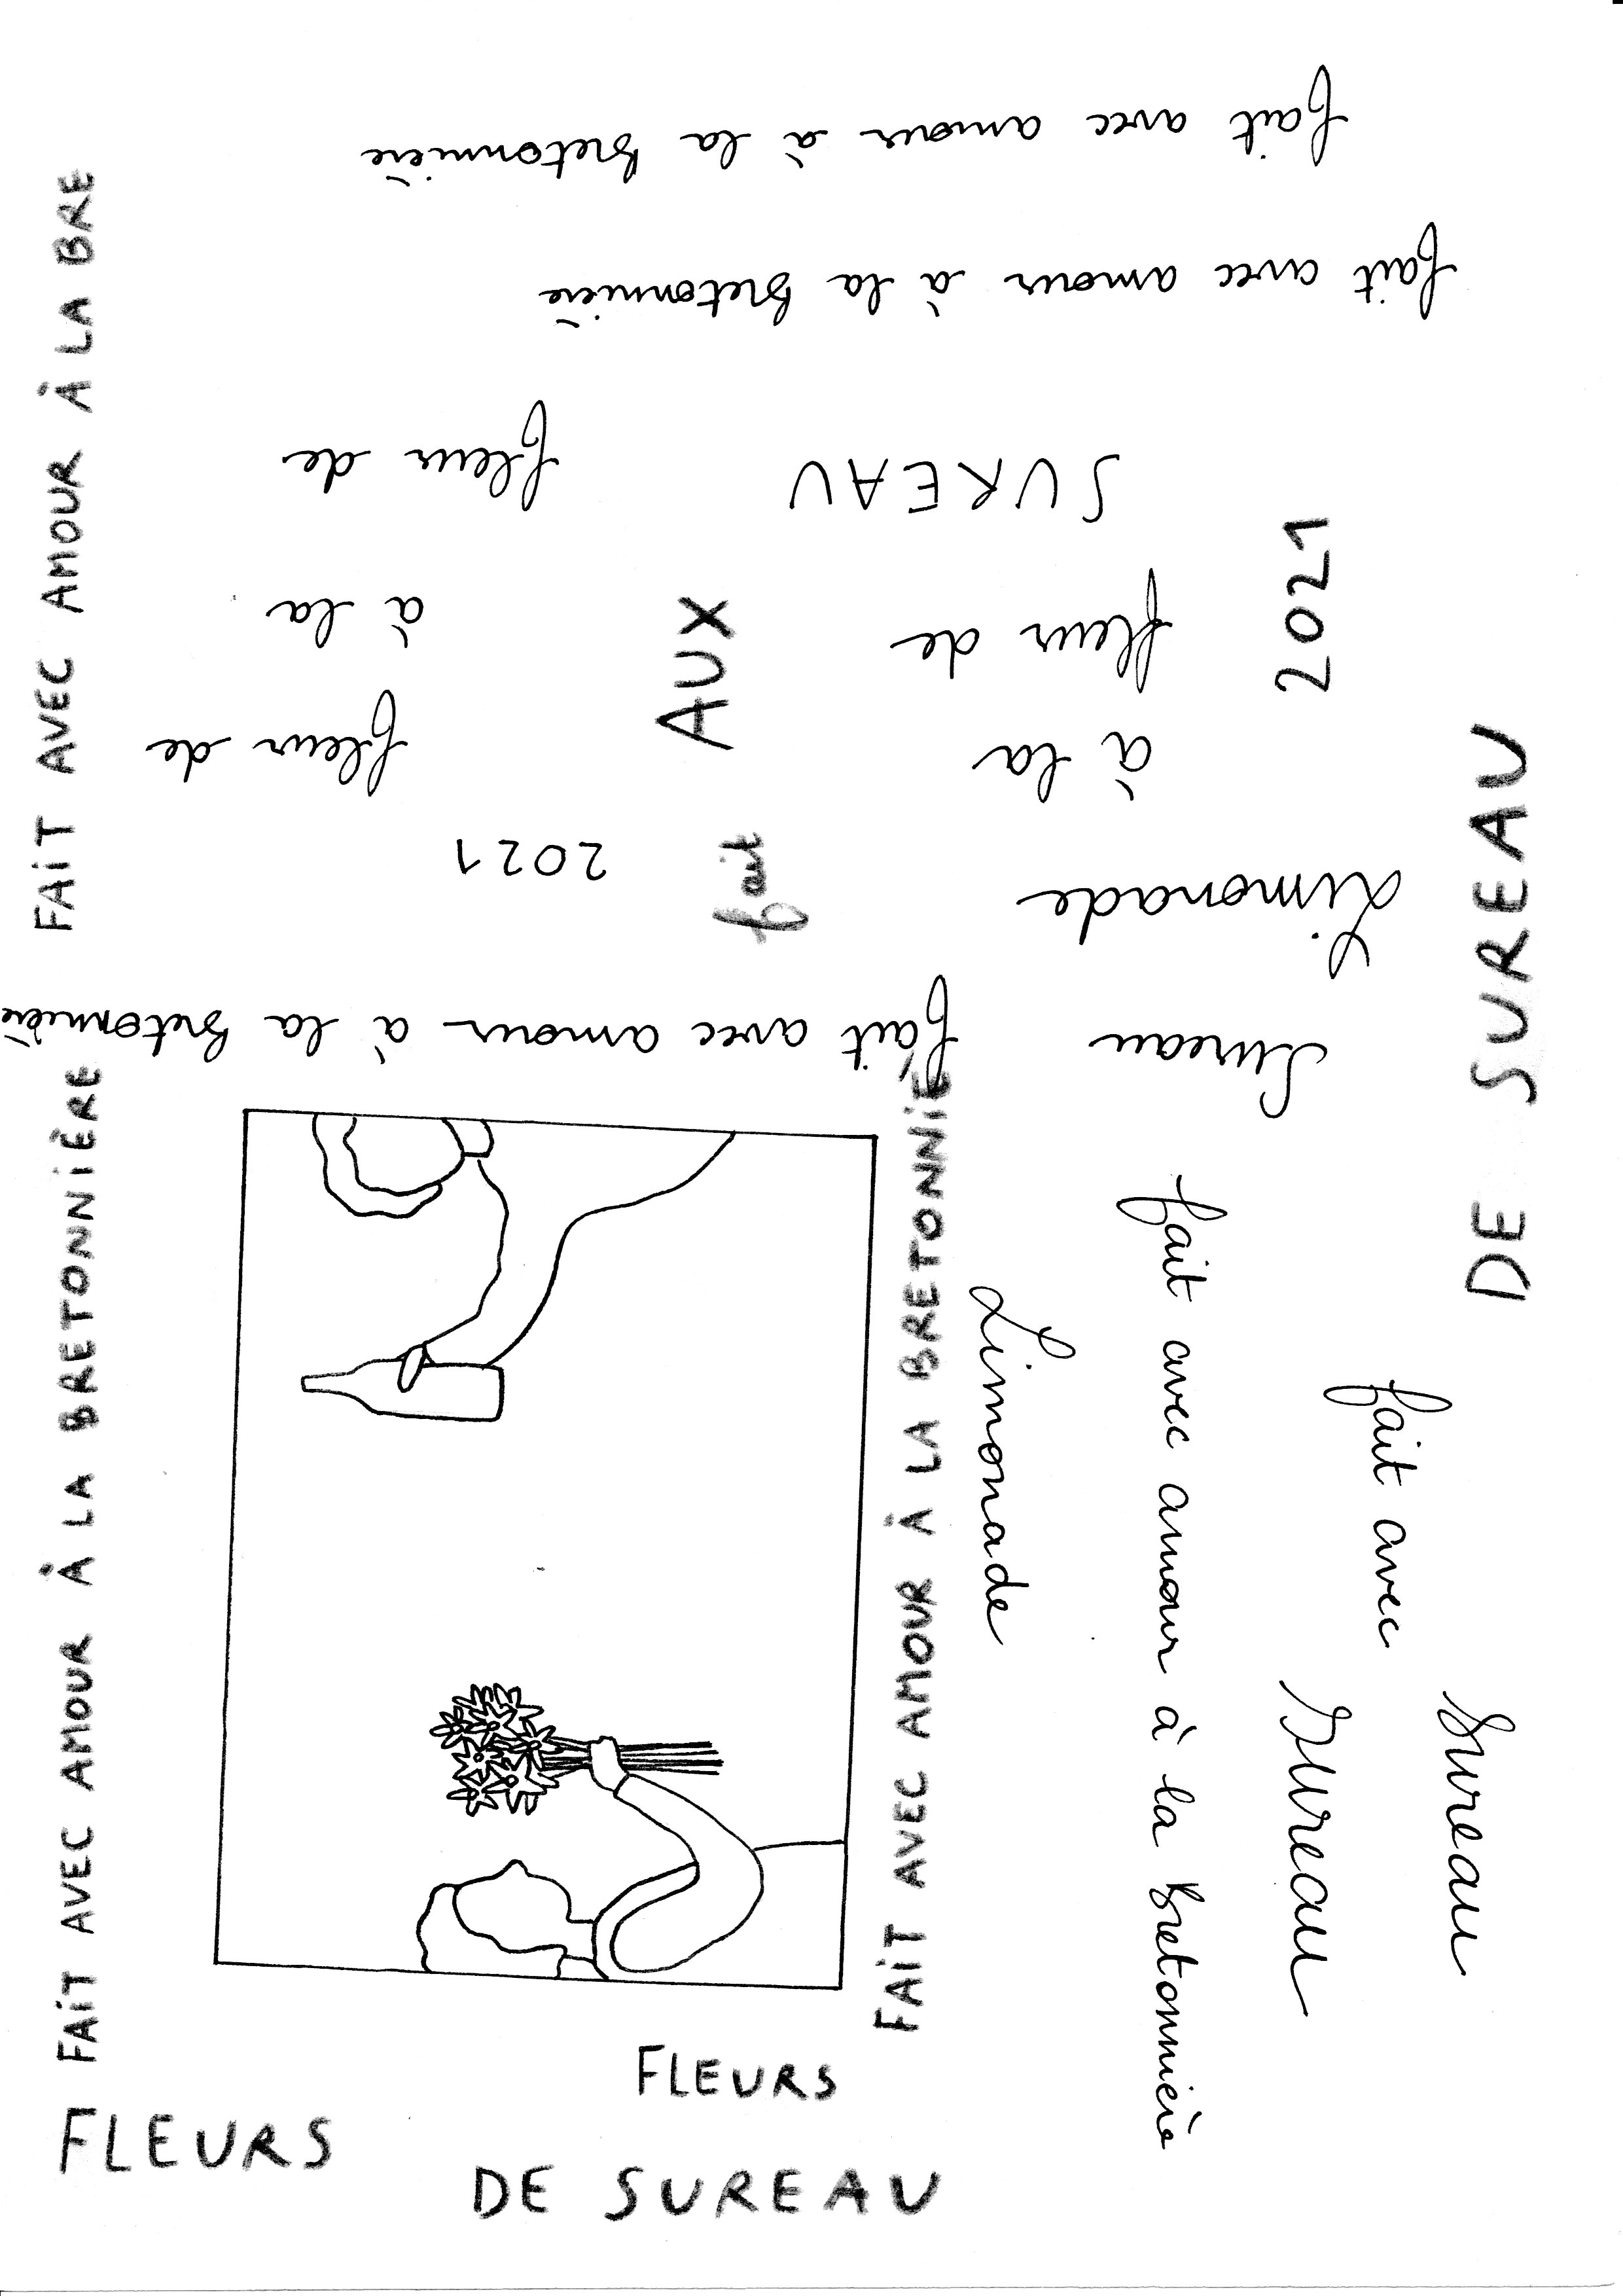 fait avec amour à la bretonnière
fait avec amour à la bretonnière
FAIT AVEC AMOUR À LA BRE
fleur de
SUREAU
2021
à la
AUX
fleur de
fleur de
à la
2021
fait
Limonade
DE SUREAU
fait avec amour à la bretonnière
Sureau
FAIT AVEC AMOUR À LA BRETONNIÈRE
FAIT AVEC AMOUR À LA BRETONNIÈ
Limonade
fait avec amour à la bretonnière
fait avec
Sureau
Sureau
FLEURS
FLEURS
DE SUREAU